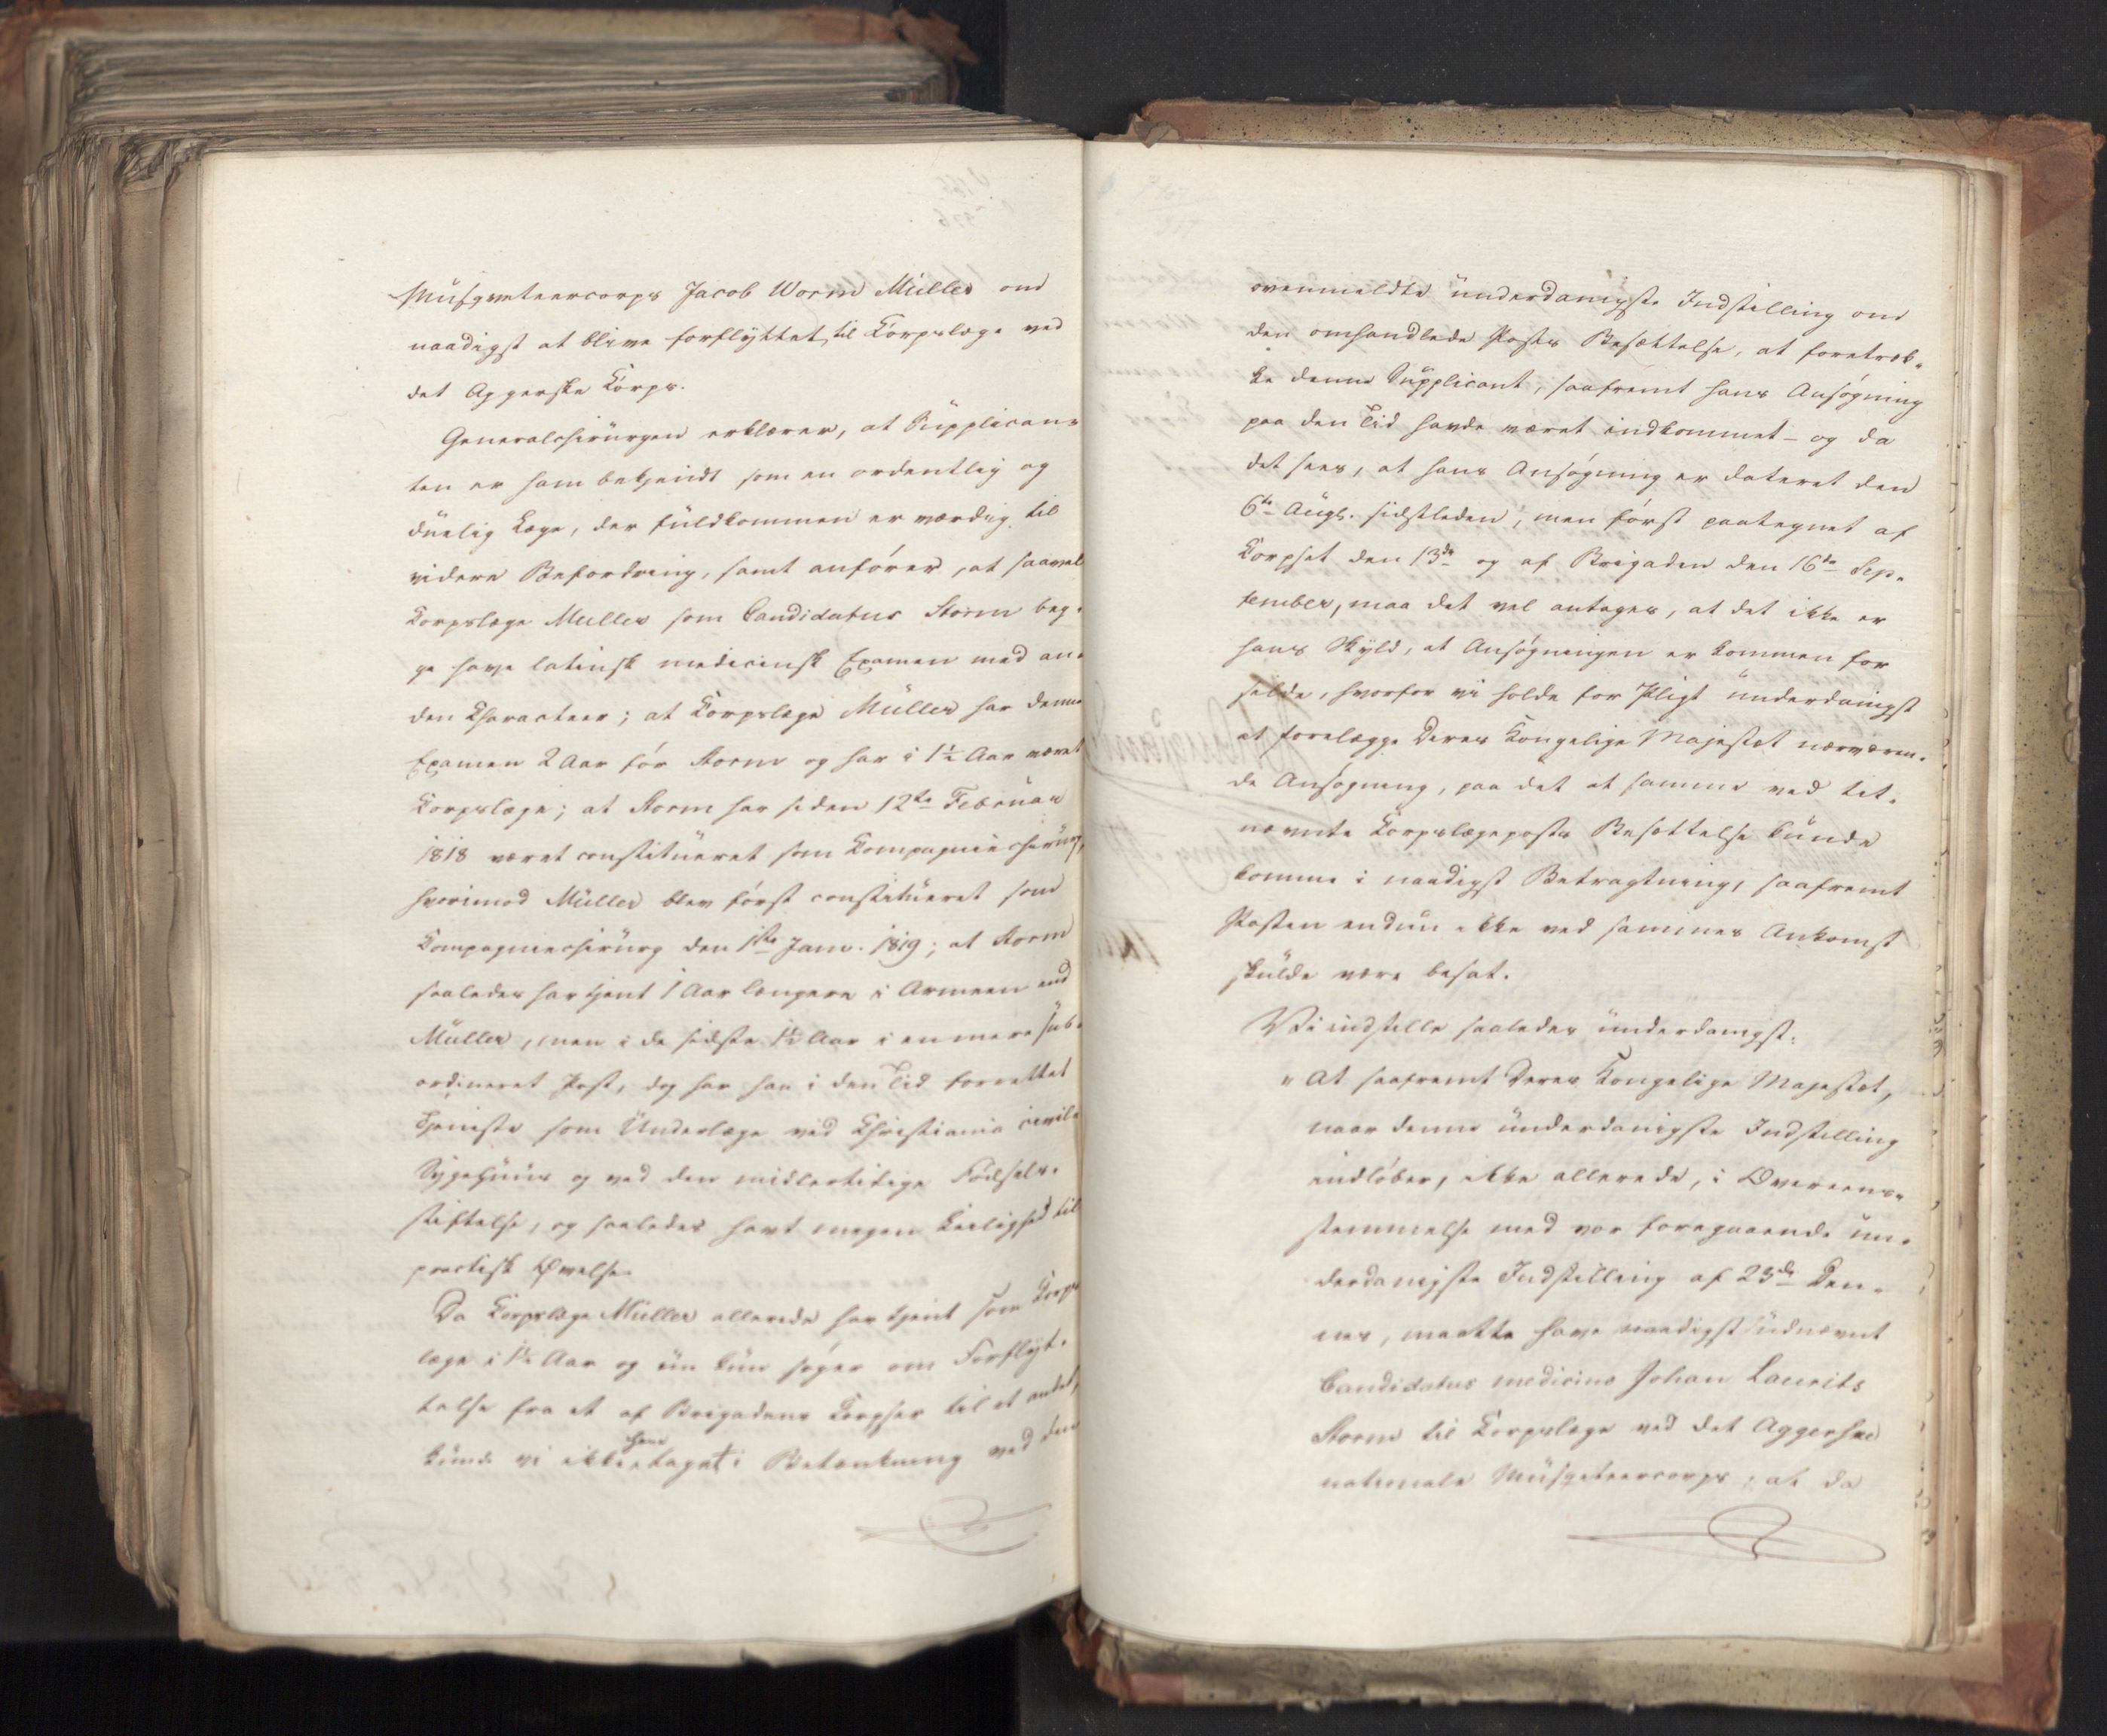 Musqueteercorps Jacob Worm Müller om
naadigst at blive forflyttet til Korpslæge ved
det Aggerske Korps.
Generalchirurgen erklærer, at Supplican-
ten er ham bekjendt som en ordentlig og
duelig Læge, der fuldkommen er værdig til
videre Befordring, samt anfører, at saavel
Korpslæge Müller som Candidatus Storm beg-
ge have latinsk medicinsk Examen med an-
den Charakteer; at Korpslæge Müller har denne
Examen 2 Aar før Storm og har i 1½ Aar været
Korpslæge; at Storm har siden 12te Februar
1818 været constitueret som Kompagniechirurg,
hvorimod Müller blev først constitueret som
Kompagniechirurg den 1ste Janv. 1819; at Storm
saaledes har tjent 1 Aar længere i Armeen end
Müller, men i de sidste 1½ Aar i en mere sub-
ordineret Post, dog har han i den Tid forrettet
Tjeneste som Underlæge ved Christiania civile
Sygehuus og ved den midlertidige Fødsels-
stiftelse, og saaledes havt megen Leilighed til
practisk Øvelse.
Da Korpslæge Müller allerede har tjent som Korps-
læge i 1½ Aar og nu kun søger om Forflyt-
telse fra et af Brigadens Korpser til et andet,
kunde vi ikke have taget i Betænkning ved den
ovenmeldte underdanigste Indstilling om
den omhandlede Posts Besættelse, at foretræk-
ke denne Supplicant, saafremt hans Ansøgning
paa den Tid havde været indkommet – og da
det sees, at hans Ansøgning er dateret den
6te Augt. sidstleden, men først paategnet af
Korpset den 13de og af Brigaden den 16de Sep-
tember, maa det vel antages, at det ikke er
hans Skyld, at Ansøgningen er kommen for
silde, hvorfor vi holde for Pligt underdanigst
at forelægge Deres Kongelige Majestæt nærværen-
de Ansøgning, paa det at samme ved bet-
nævnte Korpslægeposts Besættelse kunde
komme i naadigst Betragtning, saafremt
Posten endnu ikke ved sammes Ankomst
skulde være besat.
Vi indstille saaledes underdanigst:
"At saafremt Deres Kongelige Majestæt,
naar denne underdanigste Indstilling
indløber, ikke allerede, i Overeens-
stemmelse med vor foregaaende un-
derdanigste Indstilling af 23de den-
nes, maatte have naadigst udnævnt
Candidatus medicinæ Johan Laurits
Storm til Korpslæge ved det Aggershuse
nationale Musqueteercorps, at da